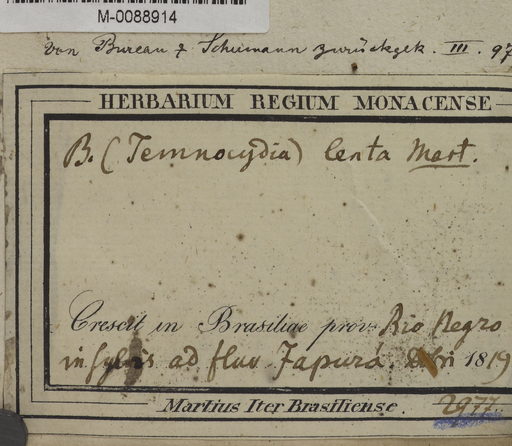 M-0088914
von Bureau & Schumann zurückgek. III. 97
HERBARIUM REGIUM MONACENSE
B. (Temnocydia) lenta Mart.
Crescit in Brasiliae prov. Rio Negro
in sylvis ad fluv Japurá. Xbri 1819
Martius Iter Brasiliense.
2977.